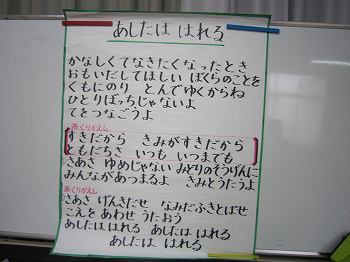 あしたは はれる
かなしくて なきたくなったとき
おもいだしてほしい ぼくらのことを
くもにのり とんでゆくからね
ひとりぼっちじゃないよ
てをつなごうよ
※くりかえし
すきだから きみがすきだから
ともだちさ いつも いつまでも
①さあさ ゆめじゃない みどりのそうげんに
みんながあつまるよ きみとうたうよ
※くりかえし
②さあさ げんきだせ なみだふきとばせ
こえを あわせ うたおう
あしたは はれる あしたは はれる
あしたは はれる